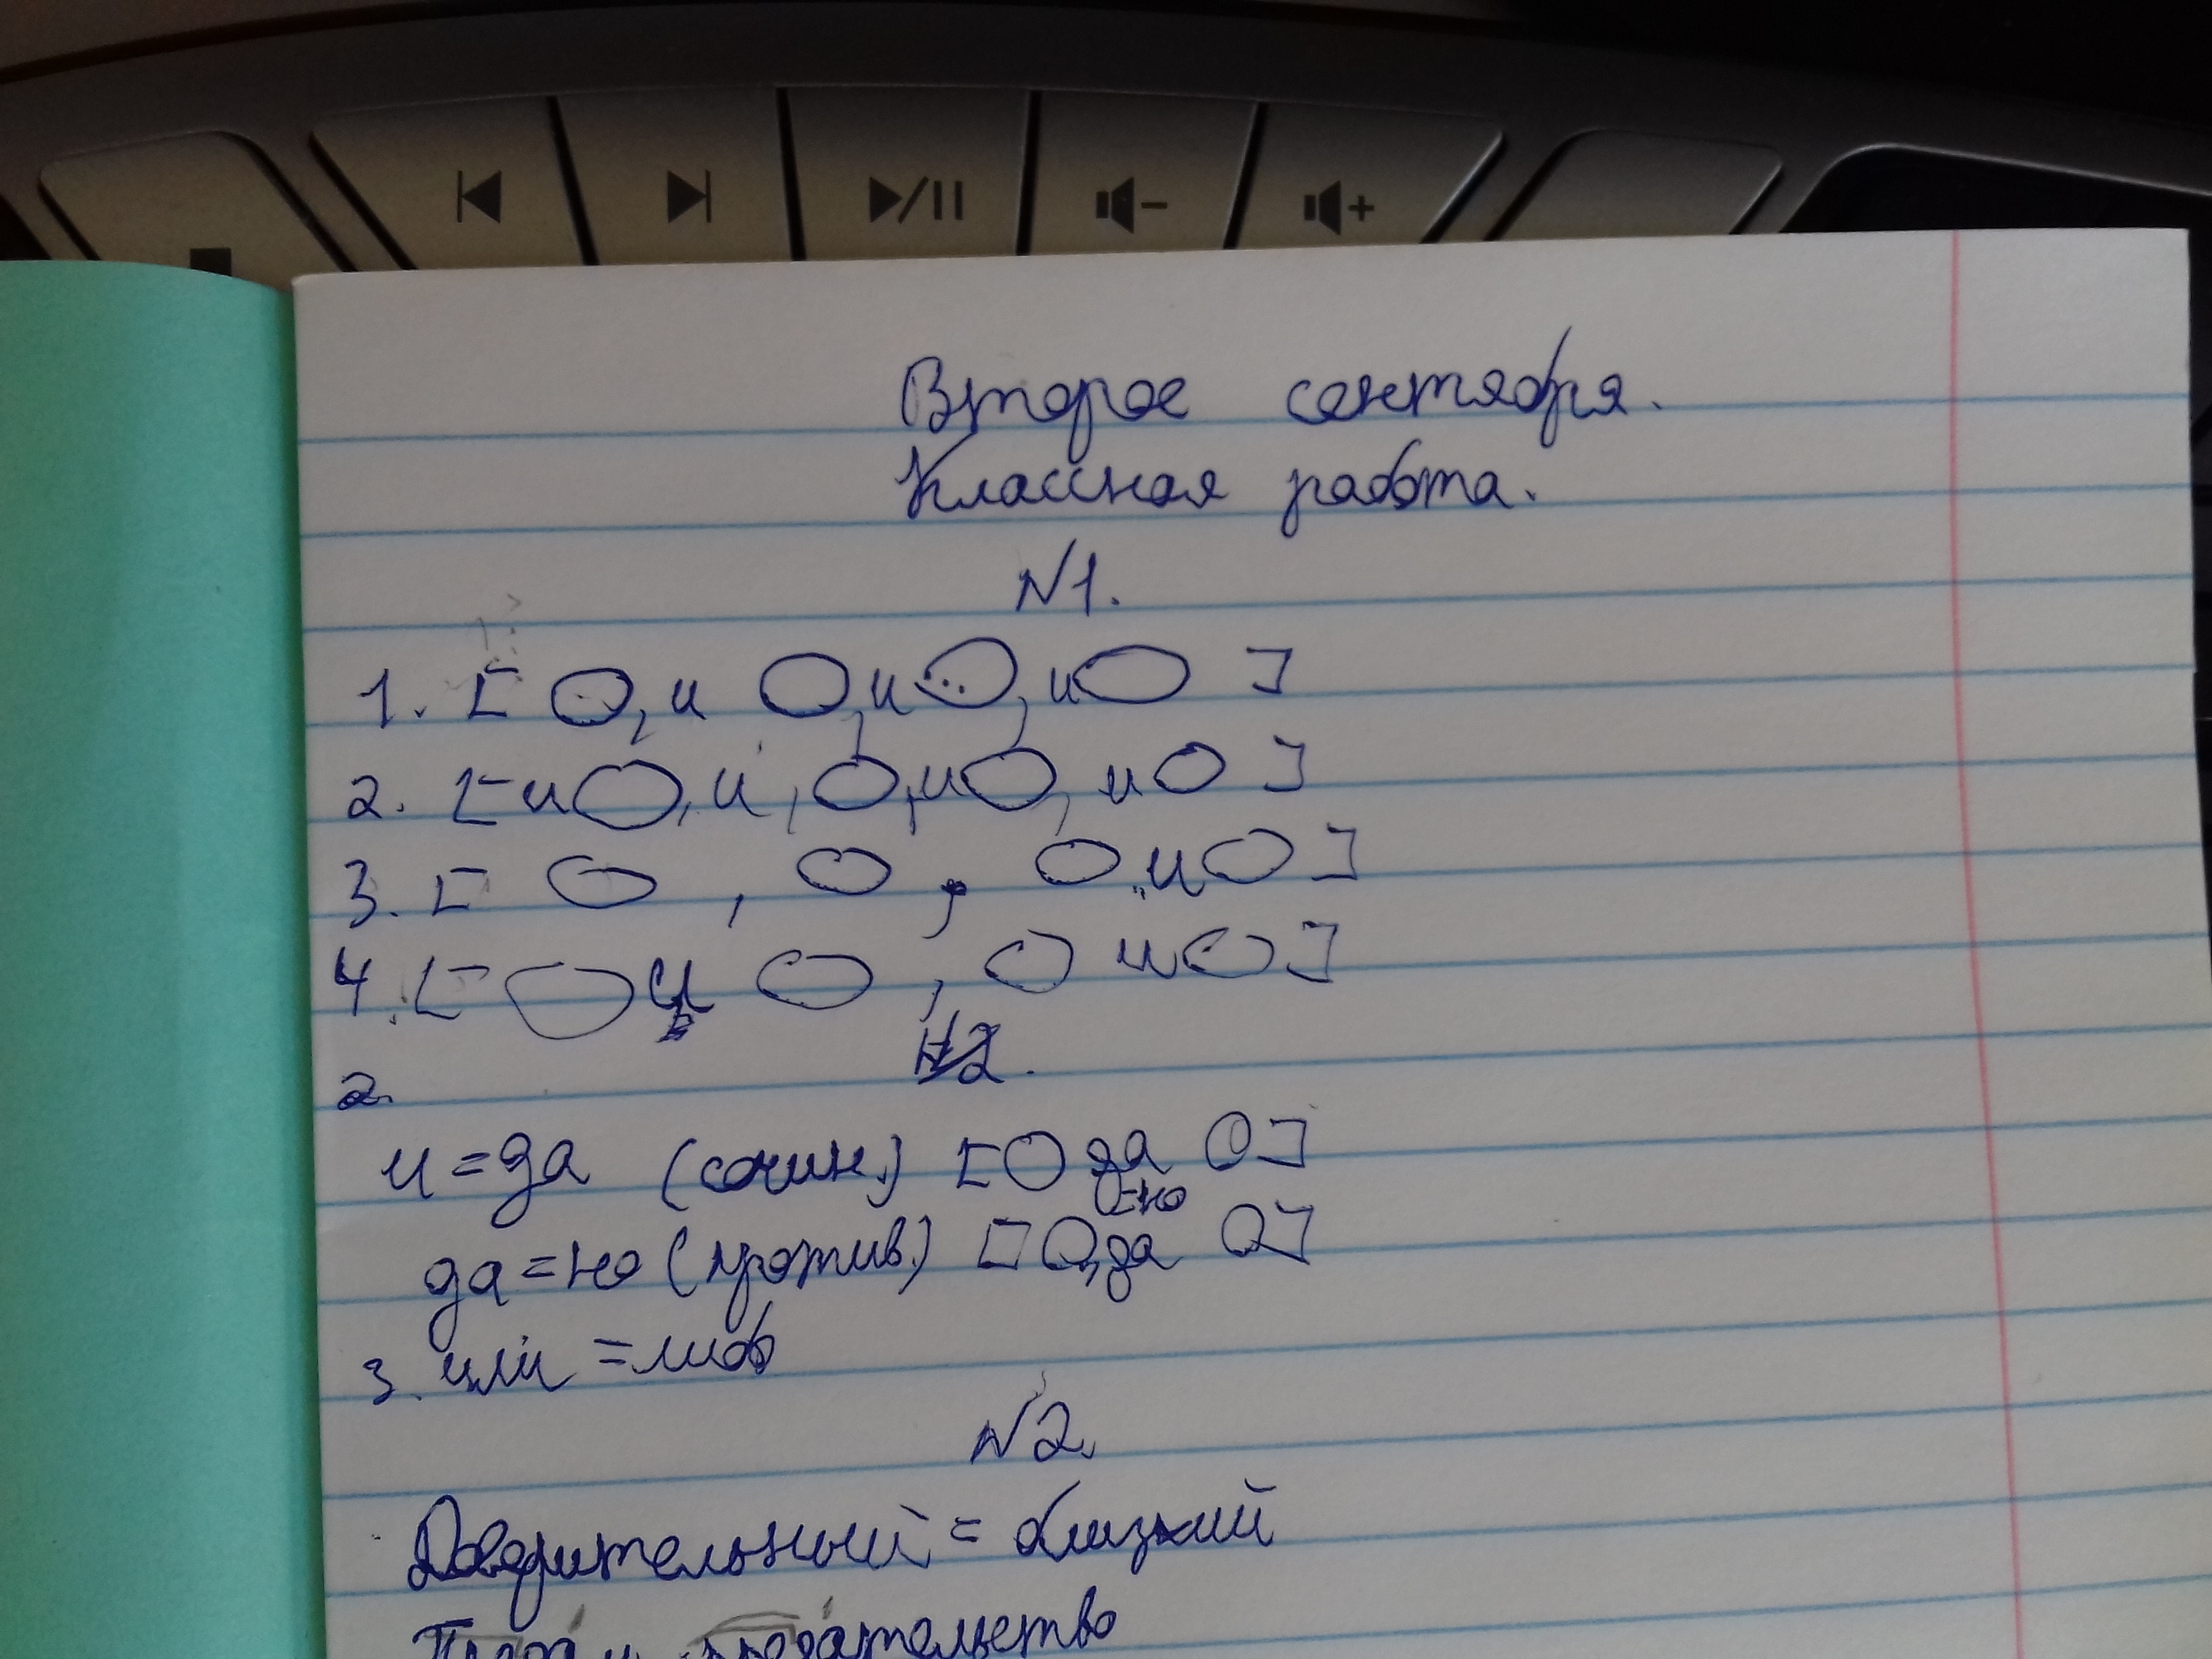 Второе сентября.
Классная работа.
N1.
1. [ О, и О, и О, и О ]
2. [ и О, и , О, и О, и О ]
3. [ О , О , О, и О ]
4. [ О и О , О и О ]
2.
и = да (сочин.) [ О да О ]
=но
да = но (против.) [ О, да О ]
3. или = либо
N2.
Доверительный = близкий
предательство